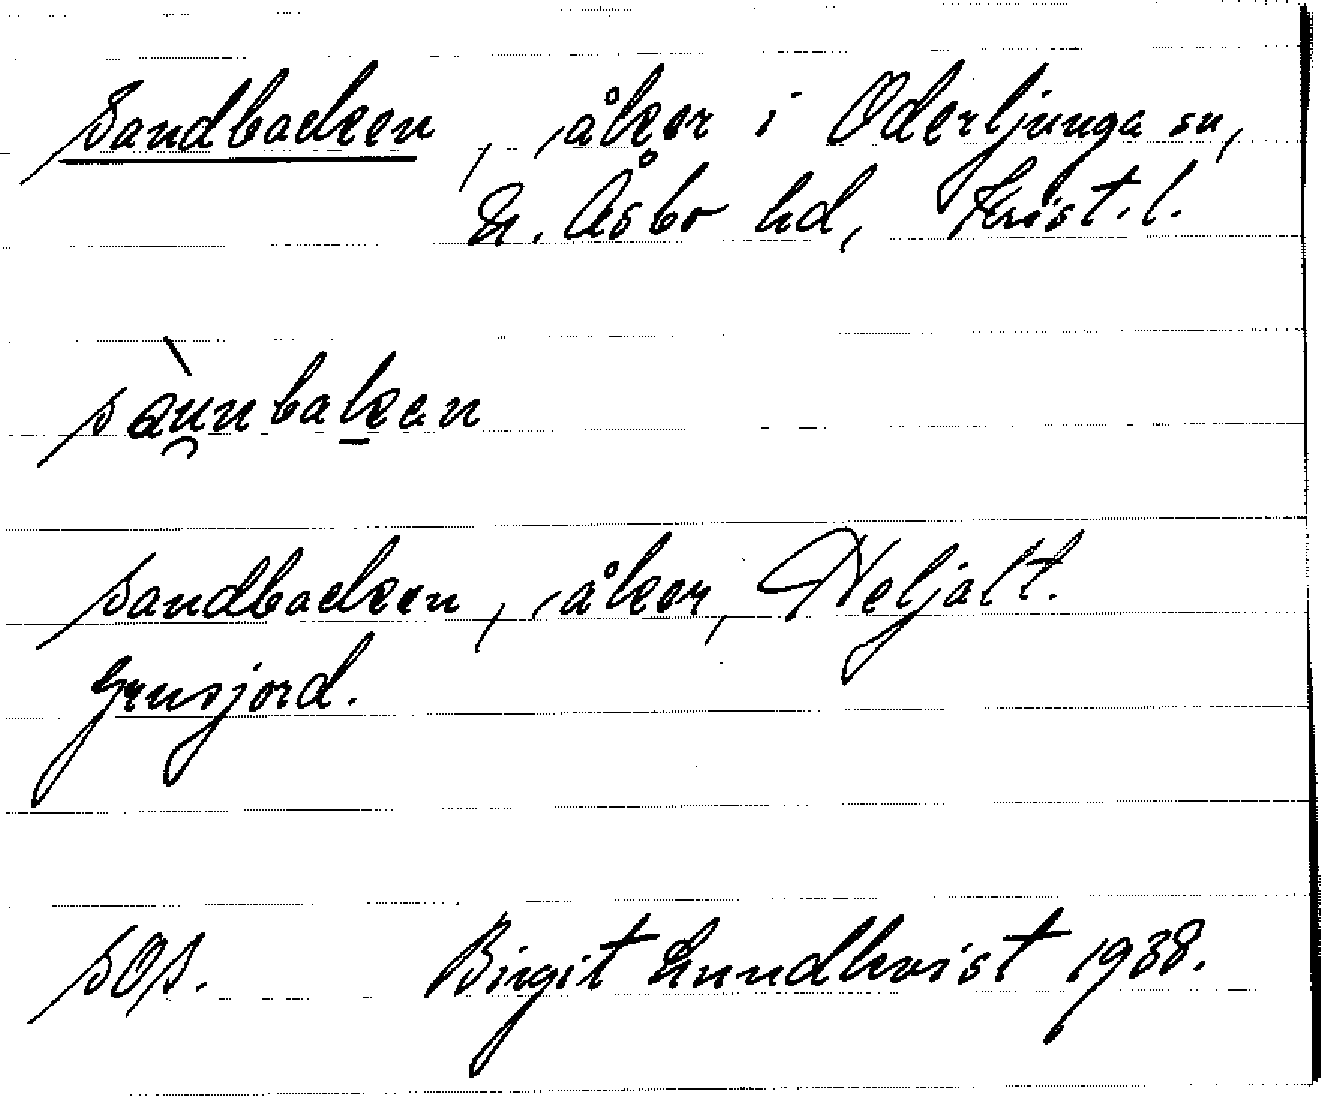 Sandbacken, åker i Oderljunga sn,
N. Åsbo hd, Krist. l.
sànnbakan
Sandbacken, åker, Heljalt.
Grusjord.
SOS. Birgit Lundkvist 1938.